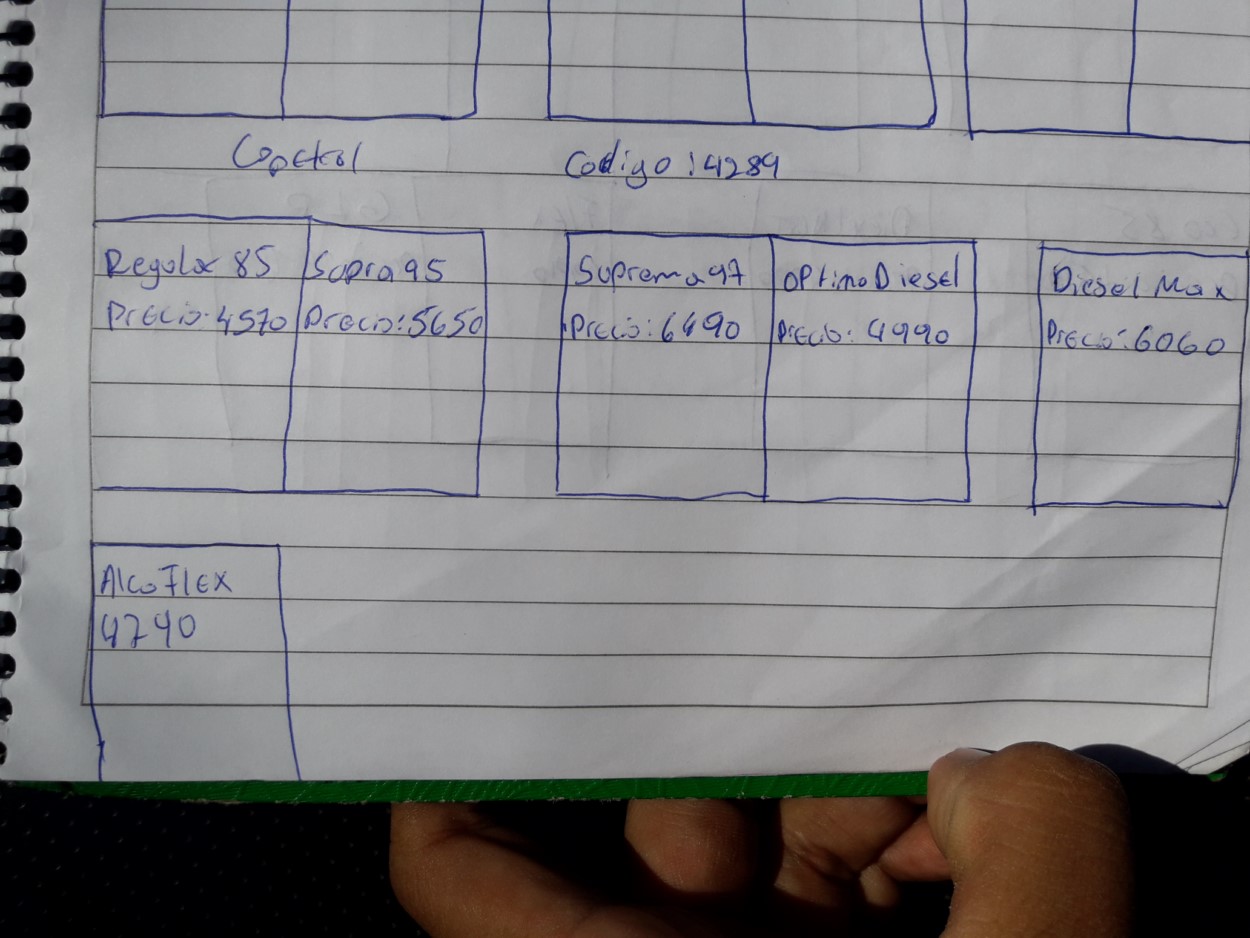 Copetrol Codigo: 4289
Regular 85 Supra 95 Suprema 97 OPtimo Diesel Diesel Max
Precio: 4570 Precio: 5650 Precio: 6490 Precio: 4990 Precio: 6060
AlcoFlex
4790